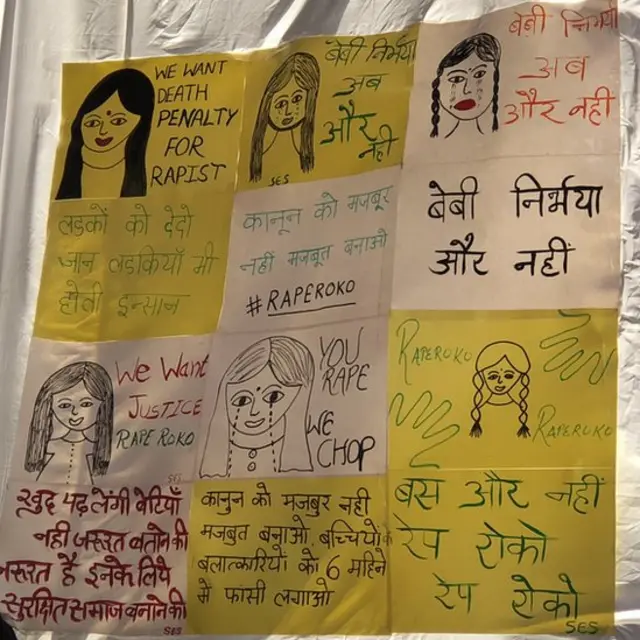 WE WANT
DEATH
PENALTY
FOR
RAPIST
बेबी निर्भया
अब
और
नही
SES
बेबी निर्भया
अब
और नही
लडकों को देदो
जान लडकियाँ भी
होती इन्सान
कानून को मजबूर
नहीं मजबूत बनाओ
#RAPEROKO
बेबी निर्भया
और नहीं
We Want
JUSTICE
RAPE ROKO
SES
YOU
RAPE
WE
CHOP
RAPEROKO
RAPEROKO
खुद पढ़ लेंगी बेटियाँ
नही जरूरत बताने की
जरूरत है इनके लिये
सुरक्षित समाज बनाने की
SES
कानुन को मजबुर नही
मजबुत बनाओ. बच्चियों के
बलात्कारियों को 6 महिने
में फांसी लगाओ
बस और नहीं
रेप रोको
रेप रोको
SES